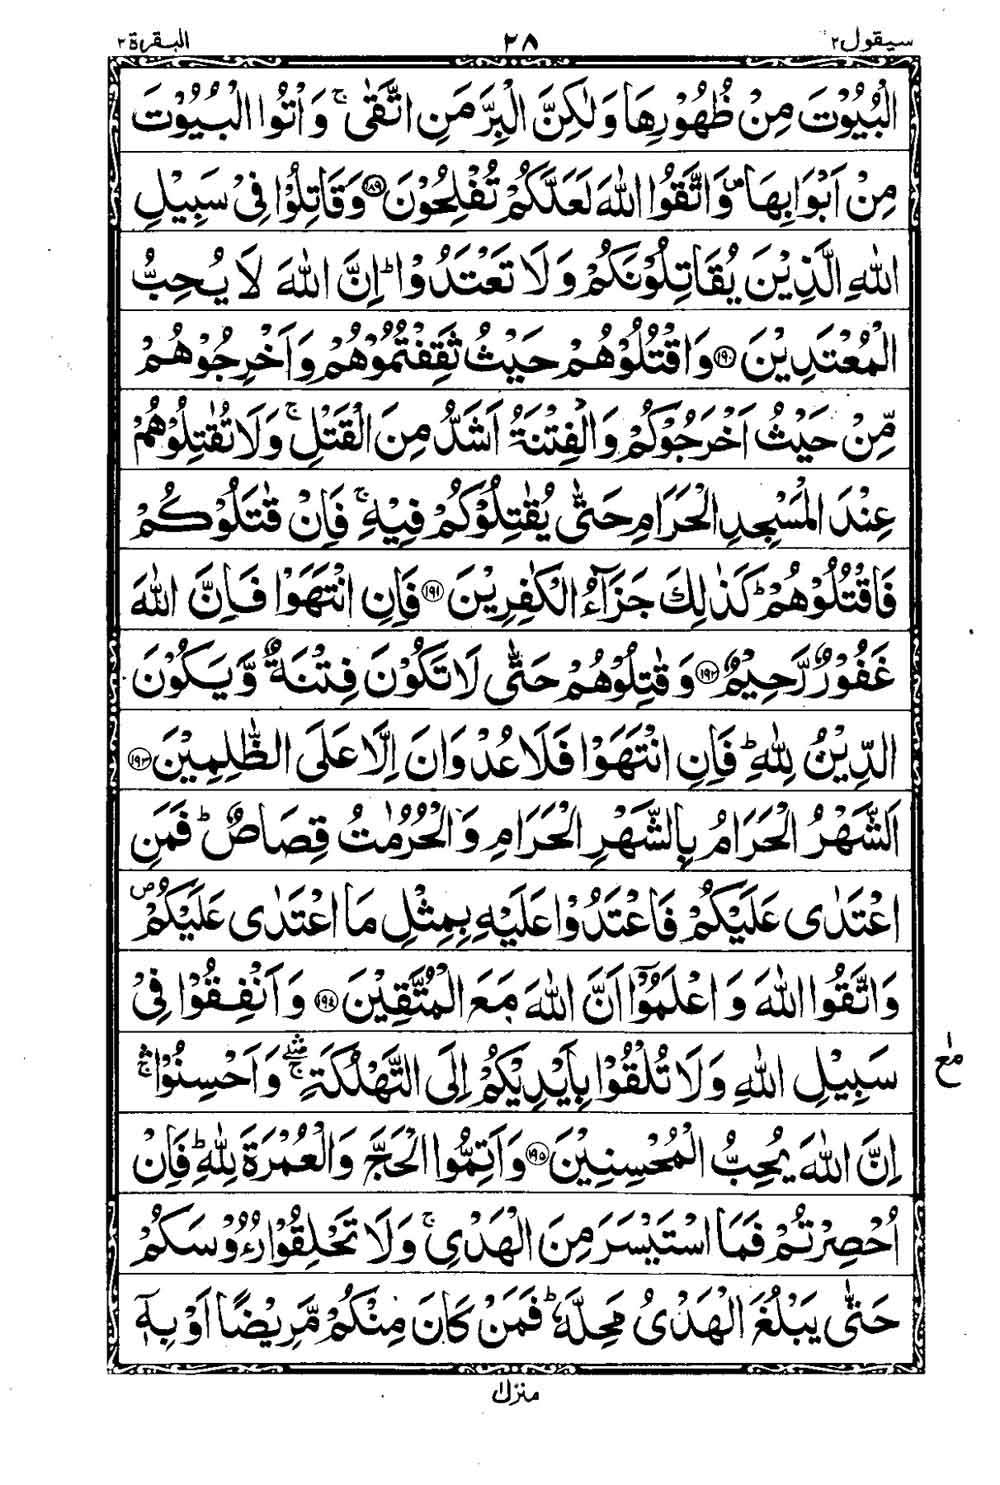 سيقول ٢ ٢٨ البقرة ٢
الْبُيُوْتَ مِنْ ظُهُوْرِهَا وَلٰكِنَّ الْبِرَّ مَنِ اتَّقٰىۚ وَاْتُوا الْبُيُوْتَ
مِنْ اَبْوَابِهَا۪ وَاتَّقُوا اللّٰهَ لَعَلَّكُمْ تُفْلِحُوْنَ ﴿١٨٩﴾ وَقَاتِلُوْا فِىْ سَبِيْلِ
اللّٰهِ الَّذِيْنَ يُقَاتِلُوْنَكُمْ وَلَا تَعْتَدُوْا ؕ اِنَّ اللّٰهَ لَا يُحِبُّ
الْمُعْتَدِيْنَ ﴿١٩٠﴾ وَاقْتُلُوْهُمْ حَيْثُ ثَقِفْتُمُوْهُمْ وَاَخْرِجُوْهُمْ
مِّنْ حَيْثُ اَخْرَجُوْكُمْ وَالْفِتْنَةُ اَشَدُّ مِنَ الْقَتْلِۚ وَلَا تُقٰتِلُوْهُمْ
عِنْدَ الْمَسْجِدِ الْحَرَامِ حَتّٰى يُقٰتِلُوْكُمْ فِيْهِۚ فَاِنْ قٰتَلُوْكُمْ
فَاقْتُلُوْهُمْؕ كَذٰلِكَ جَزَآءُ الْكٰفِرِيْنَ ﴿١٩١﴾ فَاِنِ انْتَهَوْا فَاِنَّ اللّٰهَ
غَفُوْرٌ رَّحِيْمٌ ﴿١٩٢﴾ وَقٰتِلُوْهُمْ حَتّٰى لَا تَكُوْنَ فِتْنَةٌ وَّيَكُوْنَ
الدِّيْنُ لِلّٰهِؕ فَاِنِ انْتَهَوْا فَلَا عُدْوَانَ اِلَّا عَلَى الظّٰلِمِيْنَ ﴿١٩٣﴾
اَلشَّهْرُ الْحَرَامُ بِالشَّهْرِ الْحَرَامِ وَالْحُرُمٰتُ قِصَاصٌؕ فَمَنِ
اعْتَدٰى عَلَيْكُمْ فَاعْتَدُوْا عَلَيْهِ بِمِثْلِ مَا اعْتَدٰى عَلَيْكُمْ۪
وَاتَّقُوا اللّٰهَ وَاعْلَمُوْٓا اَنَّ اللّٰهَ مَعَ الْمُتَّقِيْنَ ﴿١٩٤﴾ وَاَنْفِقُوْا فِىْ
سَبِيْلِ اللّٰهِ وَلَا تُلْقُوْا بِاَيْدِيْكُمْ اِلَى التَّهْلُكَةِ ۛۚ وَاَحْسِنُوْا ۛۚ
مع
اِنَّ اللّٰهَ يُحِبُّ الْمُحْسِنِيْنَ ﴿١٩٥﴾ وَاَتِمُّوا الْحَجَّ وَالْعُمْرَةَ لِلّٰهِؕ فَاِنْ
اُحْصِرْتُمْ فَمَا اسْتَيْسَرَ مِنَ الْهَدْىِۚ وَلَا تَحْلِقُوْا رُءُوْسَكُمْ
حَتّٰى يَبْلُغَ الْهَدْىُ مَحِلَّهٗؕ فَمَنْ كَانَ مِنْكُمْ مَّرِيْضًا اَوْ بِهٖٓ
منزل ١